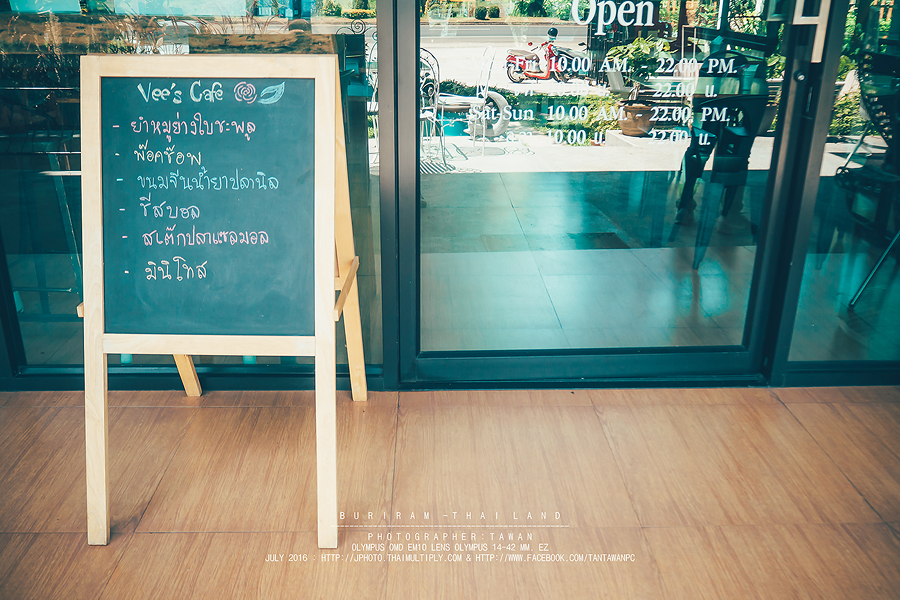 Vee's Cafe
- ยำหมูย่างใบชะพลู
- พ๊อคช๊อพ
- ขนมจีนน้ำยาปลานิล
- ชีสบอล
- สเต๊กปลาแซลมอล
- มินิโทส
Open
-Fri 10.00 AM. - 22.00 PM.
10.00 น. - 22.00 น.
Sat-Sun 10.00 AM. - 22.00 PM.
10.00 น. - 22.00 น.
BURIRAM -THAILAND
PHOTOGRAPHER:TAWAN
OLYMPUS OMD EM10 LENS OLYMPUS 14-42 MM. EZ
JULY 2016 : HTTP://JPHOTO.THAIMULTIPLY.COM & HTTP://WWW.FACEBOOK.COM/TANTAWANPC